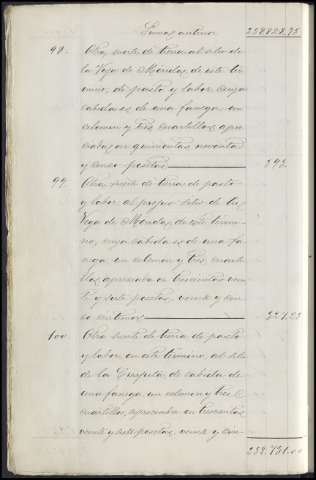 Suma anterior 258828.75
98. Otra suerte de tierra al sitio de
la Vega de Méndez, de este tér
mino, de pasto y labor, cuya
cabida es de una fanega, un
celemin y tres cuartillos, apre
ciada en quinientas noventa
y pesetas
99. Otra suerte de tierra de pasto
y labor al propio sitio de la
Vega de Méndez, de este térmi
no, cuya cabida es de una fa
nega un celemin y tres cuarti
llos, apreciada en trescientas vein
te y siete pesetas, veinte y cin
co centimos 327.25
100. Otra suerte de tierra de pasto
y labor, en este término al sitio
de la de cabida de
una fanega, un celemin y tres
cuartillos, apreciada en trescientas
veinte y siete pesetas, veinte y cin-